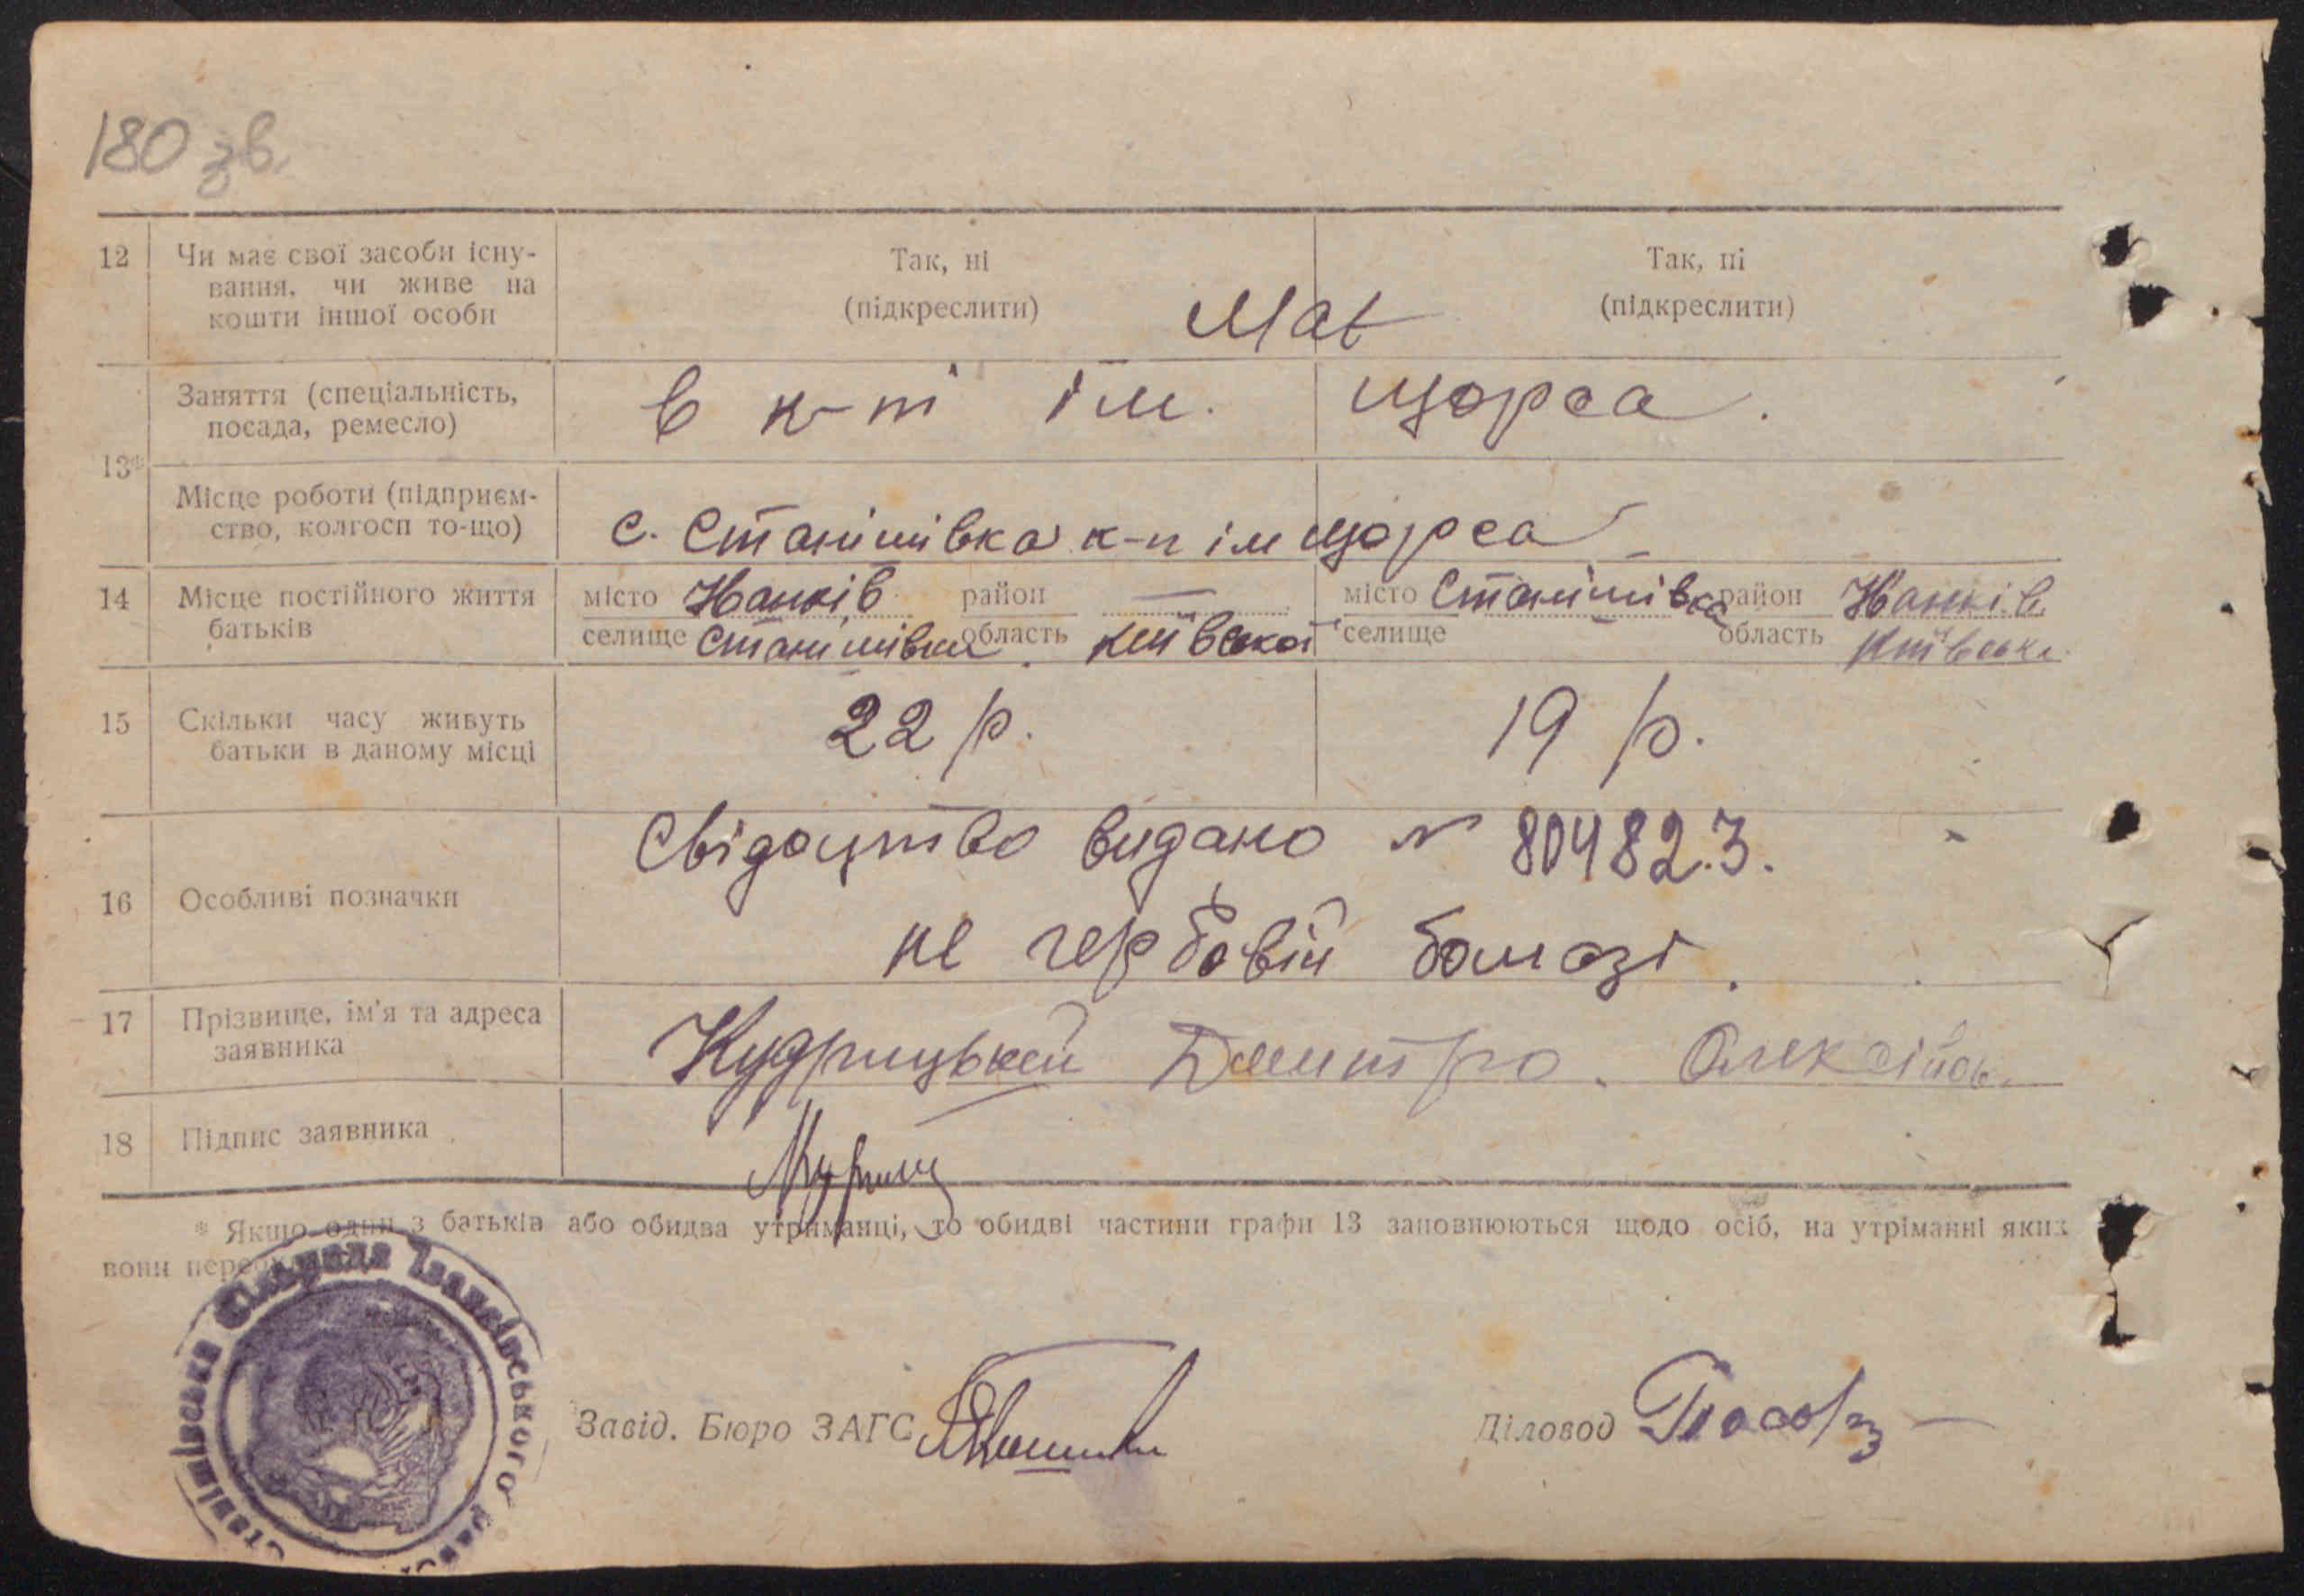 180 зв.
12 Чи має свої засоби існу- Так, ні Так, ні
вання, чи живе на (підкреслити) Має (підкреслити)
кошти іншої особи
Заняття (спеціальність, в к-ті ім. Щорса.
посада, ремесло)
13*
Місце роботи (підприєм-
ство, колгосп то-що) с. Станішівка к-п ім Щорса
14 Місце постійного життя місто район — місто Станішівка район
батьків селище область київської селище область Київська
15 Скільки часу живуть 22 р. 19 р.
батьки в даному місці
Свідоцтво видано № 804823.
16 Особливі позначки
не гербовій бомазі.
17 Прізвище, ім'я та адреса Кудрицький Дмитро. Олексійов.
заявника
18 Підпис заявника
* Якщо один з батьків або обидва утриманці, то обидві частини графи 13 заповнюються щодо осіб, на утріманні яких
вони
Станішівська Сільрада Іванківського
Завід. Бюро ЗАГС Діловод